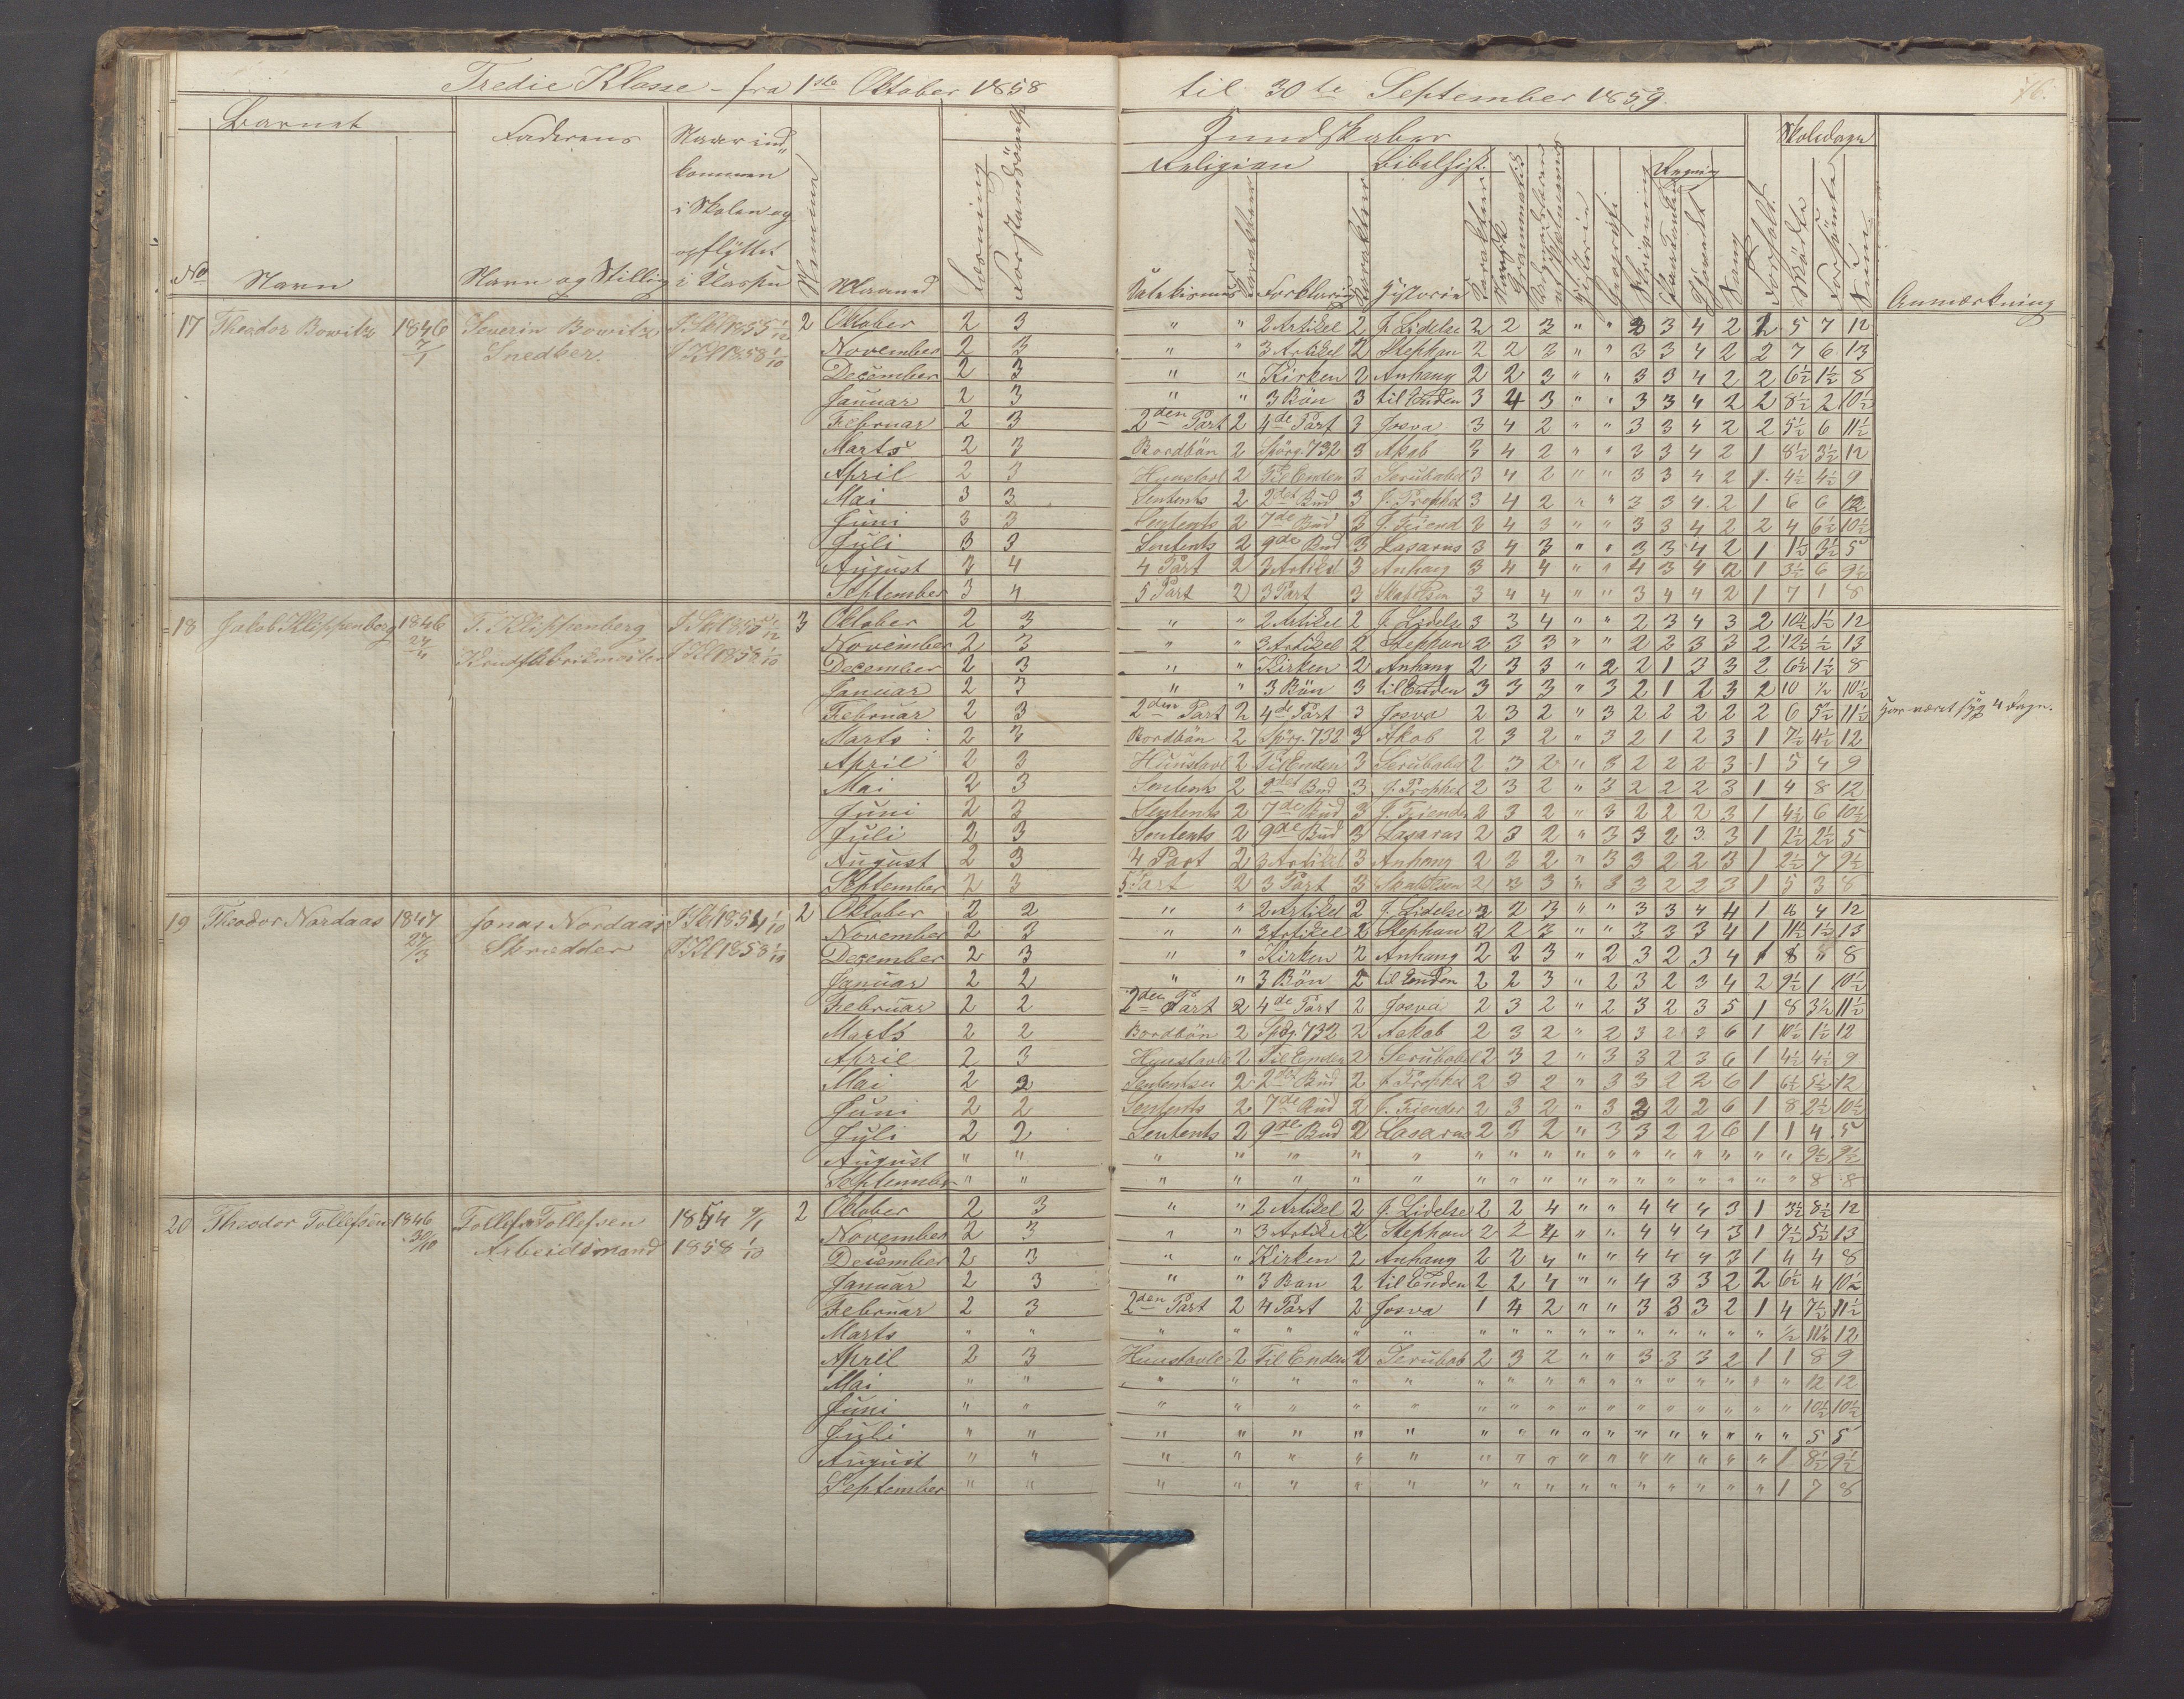 Tredie Klasse - fra 1ste Oktober 1858 til 30te September 1859.
76.
Barnet
Faderens
Naar ind-
kommen
i Skolen og
opflyttet
i Klassen
No Navn
Navn og Stilling
Maaned
Kundskaber
Religion
Bibelhist.
Regning
Skoledage
Forklaring
Historie
Karakter
Historie
Geografi
Skrivning
Sang
Forhold
Anmærkning
17 Theodor Bowitz 1846 7/1 Severin Bowitz Snedker. I Skl 1855 1/12 I Kl 1858 1/10 2
Oktober 2 3 " " 2 Artikel 2 J. Lidelse 2 2 3 " " 3 3 4 2 2 5 7 12
November 2 3 " " 3 Artikel 2 Stephan 2 2 3 " " 3 3 4 2 2 7 6 13
December 2 3 " " Kirken 2 Anhang 2 2 3 " " 3 3 4 2 2 6½ 1½ 8
Januar 2 3 " " 3 Bön 3 til Enden 3 4 3 " " 3 3 4 2 2 8½ 2 10½
Februar 2 3 2den Part 2 4de Part 3 Josva 3 4 2 " " 3 3 4 2 2 5½ 6 11½
Marts 2 3 Bordbön 2 Spörg. 732 3 Akab 3 4 2 " " 3 3 4 2 1 8½ 3½ 12
April 2 3 Hunstavl 2 Til Enden 3 Serubabel 3 4 2 " " 3 3 4 2 1 4½ 4½ 9
Mai 3 3 Sentents 2 2det Bud 3 J. Prophet 3 4 2 " " 3 3 4 2 1 6 6 12
Juni 3 3 Sentents 2 7de Bud 3 J. Fiend 3 4 3 " " 3 3 4 2 2 4 6½ 10½
Juli 3 3 Sentents 2 9de Bud 3 Lasarus 3 4 3 " " 3 3 4 2 1 1½ 3½ 5
August 3 4 4 Part 2 3 Artikel 3 Anhang 3 4 4 " " 4 3 4 2 1 3½ 6 9½
September 3 4 5 Part 2 3 Part 3 3 4 4 " " 3 4 4 2 1 7 1 8
18 Jakob Klippenberg 1846 24/4 J. Klippenberg I Kl 1858 1/10 3
Oktober 2 3 " " 2 Artikel 2 J. Lidelse 3 3 4 " " 2 3 4 3 2 10½ 1½ 12
November 2 3 " " 3 Artikel 2 Stephan 2 3 3 " " 2 2 3 3 2 12½ ½ 13
December 2 3 " " Kirken 2 Anhang 2 3 3 " 2 2 1 3 3 2 6½ 1½ 8
Januar 2 3 " " 3 Bön 3 til Enden 3 3 3 " 3 2 1 2 3 2 10 ½ 10½
Februar 2 3 2den Part 2 4de Part 3 Josva 2 3 2 " 3 2 2 2 2 2 6 5½ 11½ Har været syg 4 Dage.
Marts 2 3 Bordbön 2 Spörg. 732 3 Akab 2 3 2 " 3 2 1 2 3 1 7½ 4½ 12
April 2 3 Hunstavl 2 Til Enden 3 Serubabel 2 3 2 " 3 2 2 2 3 1 5 4 9
Mai 2 3 Sentents 2 2det Bud 3 J. Prophet 2 3 2 " 3 2 2 2 3 1 4 8 12
Juni 2 3 Sentents 2 7de Bud 3 J. Fiender 2 3 2 " 3 2 2 2 3 1 4½ 6 10½
Juli 2 3 Sentents 2 9de Bud 3 Lasarus 2 3 2 " 3 3 2 3 3 1 2½ 2½ 5
August 2 3 4 Part 2 3 Artikel 3 Anhang 2 3 2 " 3 3 2 2 3 1 2½ 7 9½
September 2 3 5 Part 2 3 Part 3 2 3 3 " 3 3 2 2 3 1 5 3 8
19 Theodor Nordaas 1847 27/3 Jonas Nordaas Skrædder I Skl 1854 1/10 I Kl 1858 1/10 2
Oktober 2 2 " " 2 Artikel 2 J. Lidelse 2 2 3 " " 3 3 4 4 1 8 4 12
November 2 3 " " 3 Artikel 2 Stephan 2 2 3 " " 3 3 3 4 1 11½ 1½ 13
December 2 3 " " Kirken 2 Anhang 2 2 3 " 2 3 2 3 4 1 8 " 8
Januar 2 2 " " 3 Bön 2 til Enden 2 2 3 " 2 3 2 3 4 2 9½ 1 10½
Februar 2 2 2den Part 2 4de Part 2 Josva 2 3 2 " 2 3 2 3 5 1 8 3½ 11½
Marts 2 2 Bordbön 2 Spörg. 732 2 Aakab 2 3 2 " 2 3 2 3 6 1 10½ 1½ 12
April 2 3 Hunstavle 2 Til Enden 2 Serubabel 2 3 2 " 3 3 2 3 6 1 4½ 4½ 9
Mai 2 2 Sententser 2 2det Bud 2 J. Prophet 2 3 2 " 3 3 2 2 6 1 6½ 5½ 12
Juni 2 2 Sentents 2 7de Bud 2 J. Fiender 2 3 2 " 3 2 2 2 6 1 8 2½ 10½
Juli 2 2 Sentents 2 9de Bud 2 Lasarus 2 3 2 " 3 3 2 2 6 1 1 4 5
August " " " " " " " " " " " " " " " " " " 9½ 9½
September " " " " " " " " " " " " " " " " " " 8 8
20 Theodor Tollefsen 1846 30/10 Tollef Tollefsen Arbeidsmand 1854 9/1 1858 1/10 2
Oktober 2 3 " " 2 Artikel 2 J. Lidelse 2 2 4 " " 4 4 4 3 1 3½ 8½ 12
November 2 3 " " 3 Artikel 2 Stephan 2 2 4 " " 4 4 4 3 1 7½ 5½ 13
December 2 3 " " Kirken 2 Anhang 2 2 4 " " 4 4 4 3 1 4 4 8
Januar 2 3 " " 3 Bøn 2 til Enden 2 2 4 " " 4 3 3 2 2 6½ 4 10½
Februar 2 3 2den Part 2 4 Part 2 Josva 1 4 2 " " 3 3 3 2 1 4 7½ 11½
Marts " " " " " " " " " " " " " " " " " ½ 11½ 12
April 2 3 Hunstavle 2 Til Enden 2 Serubab 2 3 2 " " 3 3 3 2 1 1 8 9
Mai " " " " " " " " " " " " " " " " " " 12 12
Juni " " " " " " " " " " " " " " " " " " 10½ 10½
Juli " " " " " " " " " " " " " " " " " " 5 5
August " " " " " " " " " " " " " " " " " 1 8½ 9½
September " " " " " " " " " " " " " " " " " 1 7 8